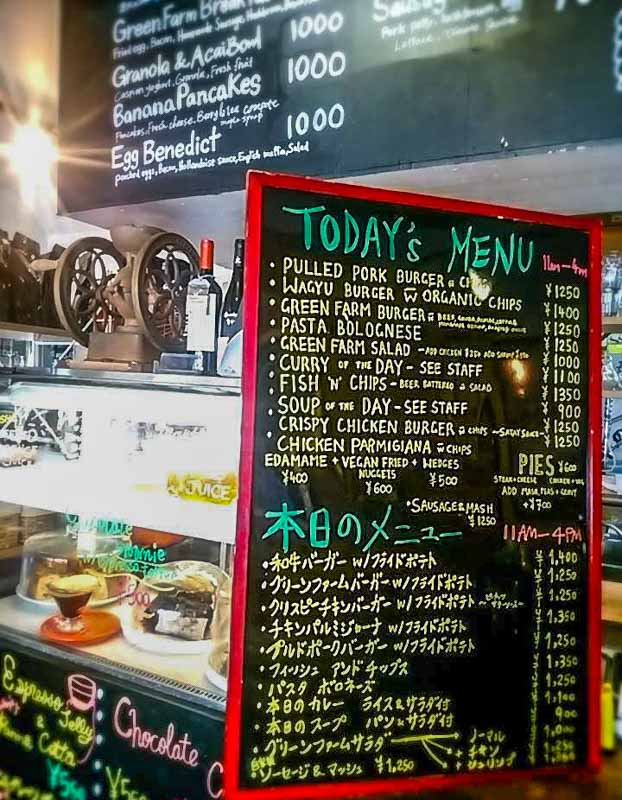 Green Farm Break
Fried egg, Bacon, Homemade Sausage,
1000
Granola & Acai Bowl
Caspian yoghurt, Granola, Fresh fruit
1000
Banana Pancakes
Pancakes, fresh cheese, Berry
maple syrup
1000
Egg Benedict
poached eggs, Bacon, Hollandaise sauce, English muffin, Salad
Sausag
TODAY's MENU
11am-4pm
• PULLED PORK BURGER
¥1250
• WAGYU BURGER w ORGANIC CHIPS
¥1400
• GREEN FARM BURGER BEER,
¥1250
• PASTA BOLOGNESE
¥1250
• GREEN FARM SALAD - ADD CHICKEN
¥1000
• CURRY OF THE DAY - SEE STAFF
¥1100
• FISH 'N' CHIPS - BEER BATTERED & SALAD
¥1350
• SOUP OF THE DAY - SEE STAFF
900
• CRISPY CHICKEN BURGER w CHIPS -SATAY SAUCE-
¥1250
• CHICKEN PARMIGIANA w CHIPS
¥1250
EDAMAME + VEGAN FRIED + WEDGES
NUGGETS
¥400
¥600
¥500
PIES ¥600
STEAK+CHEESE CHICKEN+VEG
ADD MASH, PEAS + GRAVY
+¥700
• SAUSAGE & MASH
¥1250
本日のメニュー
11AM-4PM
• 和牛バーガー w/フライドポテト
¥1,400
• グリーンファームバーガー w/フライドポテト
¥1,250
• クリスピーチキンバーガー w/フライドポテト
1,250
• チキンパルミジャーナ w/フライドポテト
1,350
• プルドポークバーガー w/フライドポテト
1,250
• フィッシュ アンド チップス
1,350
• パスタ ボロネーズ
1,250
• 本日のカレー ライス&サラダ付
1,100
• 本日のスープ パン&サラダ付
900
• グリーンファームサラダ
• ノーマル
+ チキン
+ シュリンプ
1,000
自家製
ソーセージ & マッシュ ¥1,250
JUICE
Espresso Jelly
&
Chocolate C